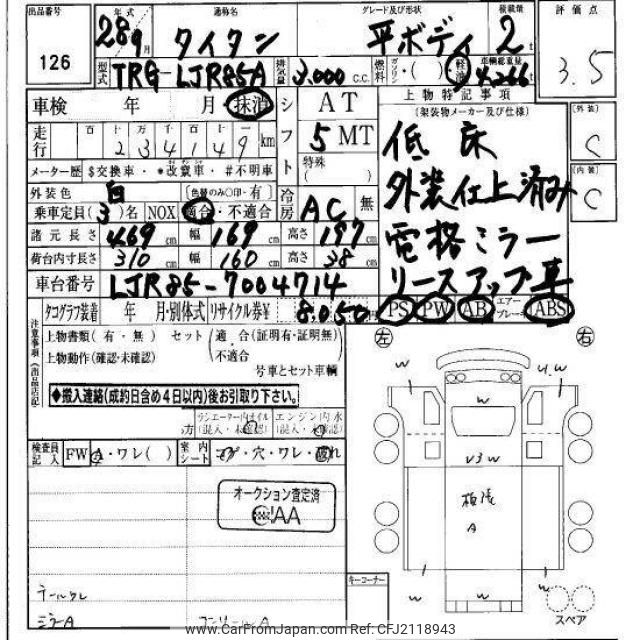 出品番号
126
年式
28年9月
通称名
タイタン
グレード及び形状
平ボディ
積載量
2t
評価点
3.5
型式
TRG-LJR85A
排気量
3.000 C.C.
燃料
ガソリン・( )
軽油
車輌総重量
車検 年 月・抹消
シフト
AT
5 MT
特殊
( )
上物特記事項
(架装物メーカー及び仕様)
低床
外装仕上済み
電格ミラー
リースアップ車
(外装)
C
(内装)
C
走行
百 十 万 千 百 十 一
234149 km
メーター歴 $交換車・*改竄車・#不明車
外装色
白
(色替のみ○印・有)
冷房
AC 無
乗車定員(3)名 NOX 適合・不適合
諸元長さ 469cm 幅 169cm 高さ 197cm
荷台内寸長さ 310cm 幅 160cm 高さ 38cm
車台番号
LJR85-7004714
タコグラフ装着 年 月・別体式
リサイクル券¥ 8.050円
PS PW AB エアーブレーキ ABS
注意事項(出品店記)
上物書類(有・無) セット(適合(証明有・証明無)
上物動作(確認・未確認) 不適合
号車とセット車輌
◆搬入連絡(成約日含め4日以内)後お引取り下さい。
検査員記入
FW A・ワレ( )
室内シート
コゲ・穴・ワレ・破れ
オークション査定済
CIAA
左
右
w
U.W
w
w
V3W
w
A
w
w
w
キーコーナー
スペア
ミラーA
www.CarFromJapan.com Ref: CFJ2118943